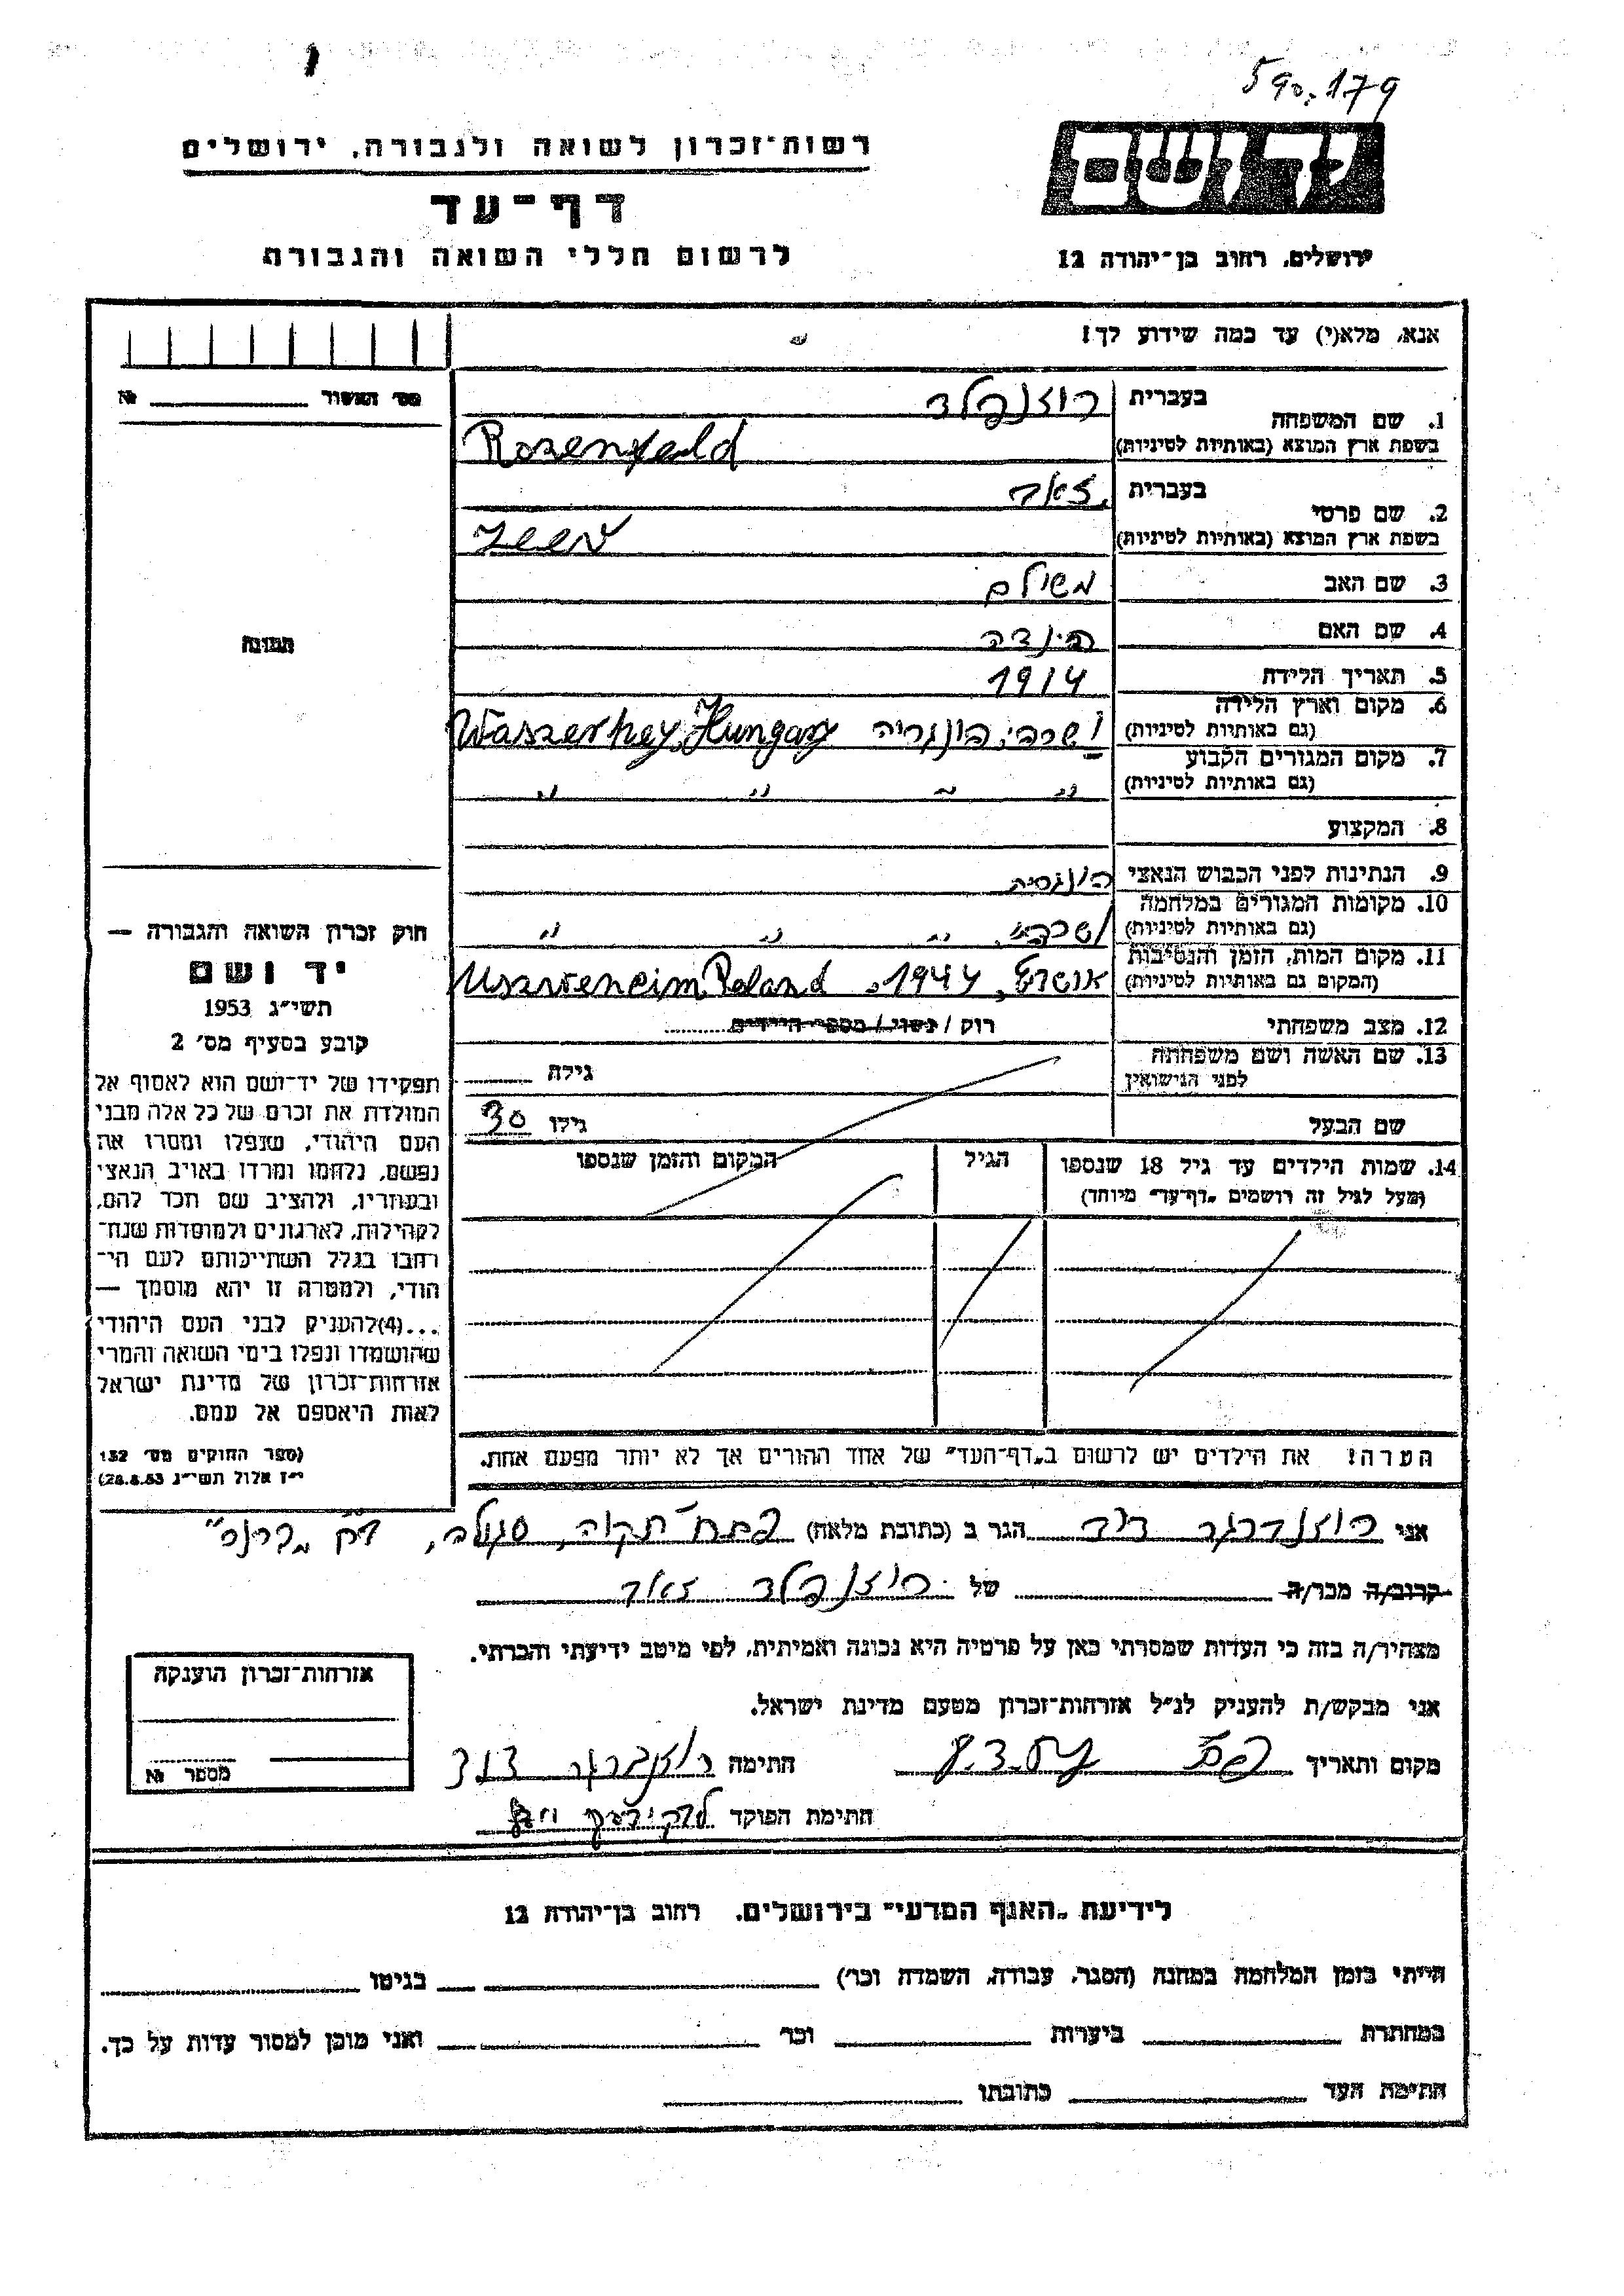 590.179
יד ושם
ירושלים, רחוב בן־יהודה 12
רשות־זכרון לשואה ולגבורה, ירושלים
דף־עד
לרשום חללי השואה והגבורה
אנא, מלא(י) עד כמה שידוע לך!
מס׳ האשור № 
1. שם המשפחה
בעברית רוזנפלד
בשפת ארץ המוצא (באותיות לטיניות) Rosenfeld
2. שם פרטי
בעברית זאב
בשפת ארץ המוצא (באותיות לטיניות) Zeev
3. שם האב משולם
4. שם האם הינדה
5. תאריך הלידה 1914
6. מקום וארץ הלידה
(גם באותיות לטיניות) ושרהי, הונגריה Waszerhey, Hungary
7. מקום המגורים הקבוע
(גם באותיות לטיניות) " " " "
8. המקצוע
9. הנתינות לפני הכבוש הנאצי הונגריה
10. מקומות המגורים במלחמה
(גם באותיות לטיניות) ושרהי, " " "
11. מקום המות, הזמן והנסיבות
(המקום גם באותיות לטיניות) 1944. Poland
12. מצב משפחתי רוק / נשוי / מספר הילדים
13. שם האשה ושם משפחתה
לפני הנישואין גילה
שם הבעל גילו 30
14. שמות הילדים עד גיל 18 שנספו הגיל המקום והזמן שנספו
(מעל לגיל זה רושמים „דף־עד״ מיוחד)
הערה! את הילדים יש לרשום ב„דף־העד״ של אחד ההורים אך לא יותר מפעם אחת.
תמונה
חוק זכרון השואה והגבורה —
יד ושם
תשי״ג 1953
קובע בסעיף מס׳ 2
תפקידו של יד־ושם הוא לאסוף אל
המולדת את זכרם של כל אלה מבני
העם היהודי, שנפלו ומסרו את
נפשם, נלחמו ומרדו באויב הנאצי
ובעוזריו, ולהציב שם וזכר להם,
לקהילות, לארגונים ולמוסדות שנח־
רבו בגלל השתייכותם לעם הי־
הודי, ולמטרה זו יהא מוסמך —
...(4)להעניק לבני העם היהודי
שהושמדו ונפלו בימי השואה והמרי
אזרחות־זכרון של מדינת ישראל
לאות היאספם אל עמם.
(ספר החוקים מס׳ 132
י״ז אלול תשי״ג 28.8.53)
אני דוד הגר ב (כתובת מלאה) פתח־תקוה, סגולה,
קרוב/ה מכר/ה של רוזנפלד זאב
מצהיר/ה בזה כי העדות שמסרתי כאן על פרטיה היא נכונה ואמיתית, לפי מיטב ידיעתי והכרתי.
אני מבקש/ת להעניק לנ״ל אזרחות־זכרון מטעם מדינת ישראל.
מקום ותאריך חתימה דוד
חתימת הפוקד
אזרחות־זכרון הוענקה
מספר №
לידיעת „האגף המדעי״ בירושלים, רחוב בן־יהודה 12
הייתי בזמן המלחמה במחנה (הסגר, עבודה, השמדה וכו׳) בגיטו
במחתרת ביערות וכו׳ ואני מוכן למסור עדות על כך.
חתימת העד כתובתו